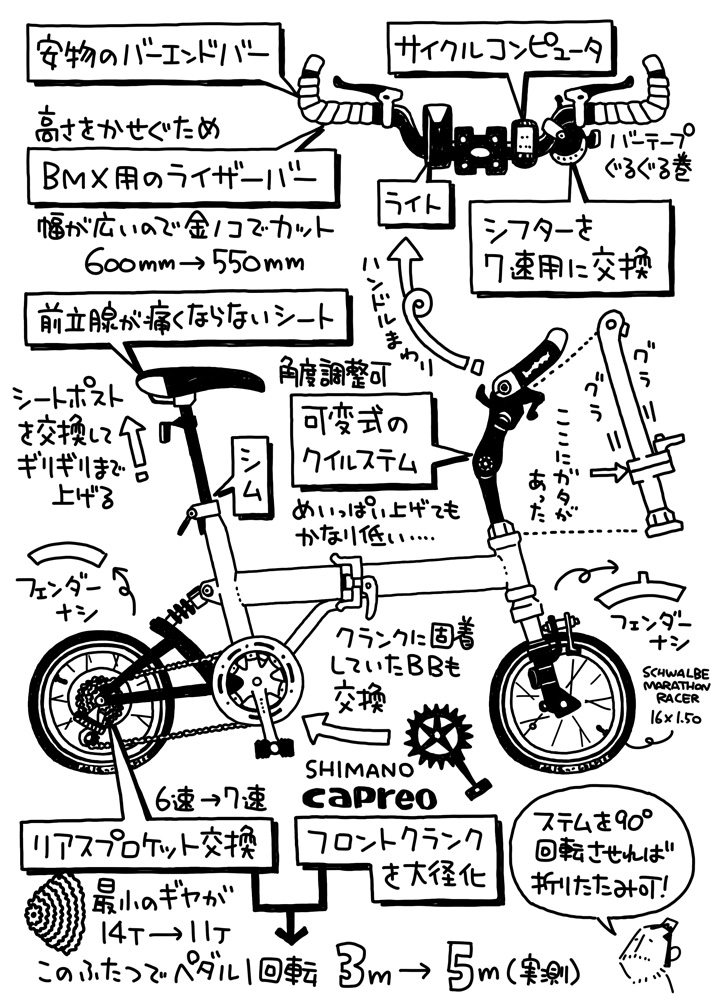 安物のバーエンドバー
サイクルコンピュータ
高さをかせぐため
BMX用のライザーバー
幅が広いので金ノコでカット
600mm→550mm
バーテープ
ぐるぐる巻
ライト
シフターを
7速用に交換
ハンドルまわり
前立腺が痛くならないシート
シートポスト
を交換して
ギリギリまで
上げる
シム
角度調整可
可変式の
クイルステム
めいっぱい上げても
かなり低い‥‥
グラ
グラ
ここにガタが
あった
フェンダー
ナシ
フェンダー
ナシ
SCHWALBE
MARATHON
RACER
16×1.50
クランクに固着
していたBBも
交換
SHIMANO
capreo
6速→7速
リアスプロケット交換
フロントクランク
を大径化
最小のギヤが
14T→11T
このふたつでペダル1回転 3m→5m(実測)
ステムを90°
回転させれば
折りたたみ可!